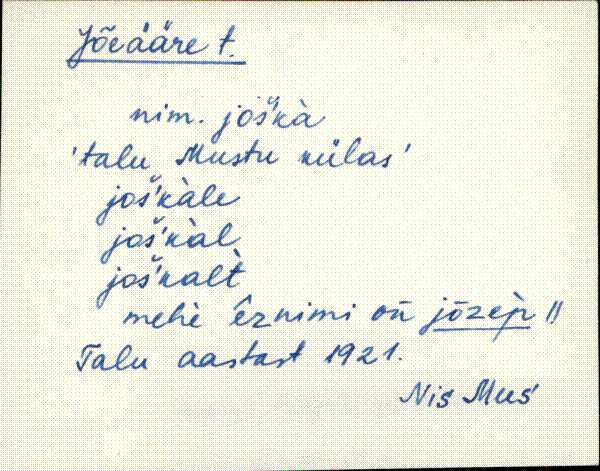 Jõeääre t.
nim. još'kà
'talu Mustu külas'
još'kàle
još'kàl
još'kalt̀
mehè êznimi on̄ jōzep̀ ||
Talu aastast 1921.
Nis Mus